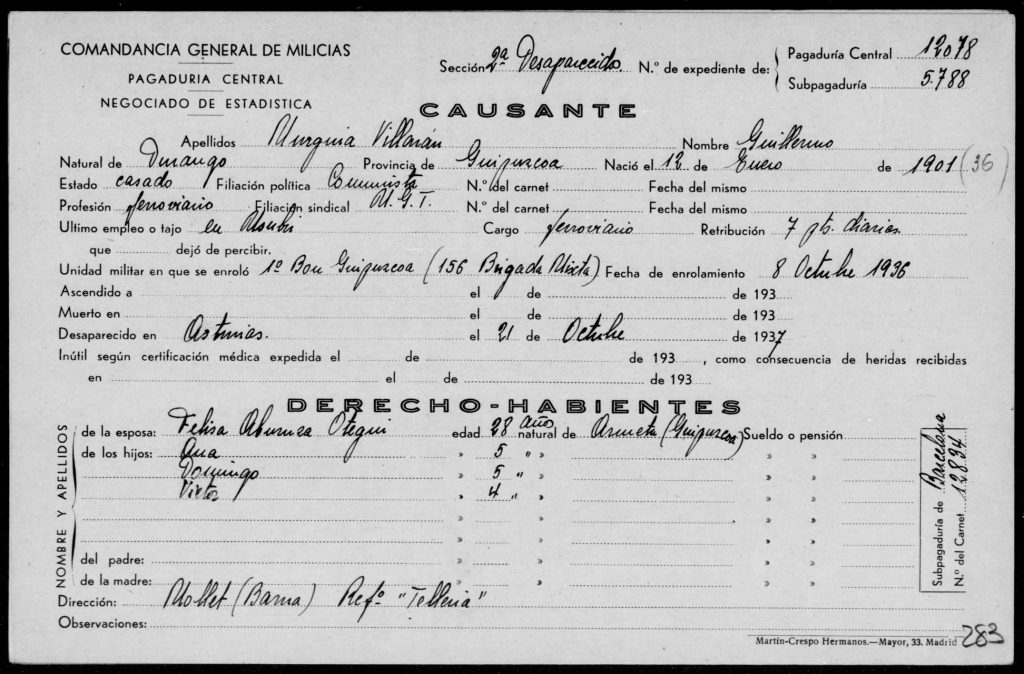 COMANDANCIA GENERAL DE MILICIAS
PAGADURIA CENTRAL
NEGOCIADO DE ESTADISTICA
Sección 2ª Desaparecido. N.º de expediente de: Pagaduría Central 12078
Subpagaduría 5.788
CAUSANTE
Apellidos Urquia Villarán Nombre Guillermo
Natural de Durango Provincia de Guipuzcoa Nació el 12 de Enero de 1901 (36)
Estado casado Filiación política Comunista N.º del carnet Fecha del mismo
Profesión ferroviario Filiación sindical U.G.T. N.º del carnet Fecha del mismo
Ultimo empleo o tajo en Cargo ferroviario Retribución 7 pts. diarias.
que dejó de percibir.
Unidad militar en que se enroló 1º Bon Guipuzcoa (156 Brigada Mixta) Fecha de enrolamiento 8 Octubre 1936
Ascendido a el de de 193
Muerto en el de de 193
Desaparecido en Asturias. el 21 de Octubre de 1937
Inútil según certificación médica expedida el de de 193 , como consecuencia de heridas recibidas
en el de de 193
DERECHO-HABIENTES
NOMBRE Y APELLIDOS
de la esposa: Felisa Otegui edad 28 años natural de (Guipuzcoa) Sueldo o pensión
de los hijos: Ana » 5 " » » »
Domingo » 5 " » » »
Victor » 4 " » » »
» » » »
» » » »
del padre: » » » »
de la madre: » » » »
Dirección: Mollet (Barna) Refº "Telleria"
Observaciones:
Subpagaduría de Barcelona
N.º del Carnet 12894
Martín-Crespo Hermanos.—Mayor, 33. Madrid
283